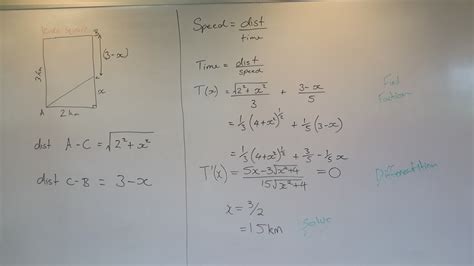 B
3km
(3-x)
x
A
2km
dist A-C = √(2² + x²)
dist C-B = 3-x
Speed = dist/time
Time = dist/speed
T(x) = √(2² + x²)/3 + (3-x)/5
= 1/3 (4+x²)^(1/2) + 1/5 (3-x)
= 1/3 (4+x²)^(1/2) + 3/5 - 1/5 x
T'(x) = (5x-3√(x²+4))/(15√(x²+4)) = 0
x = 3/2
= 1.5km
Find
Function
Differentiation
Solve